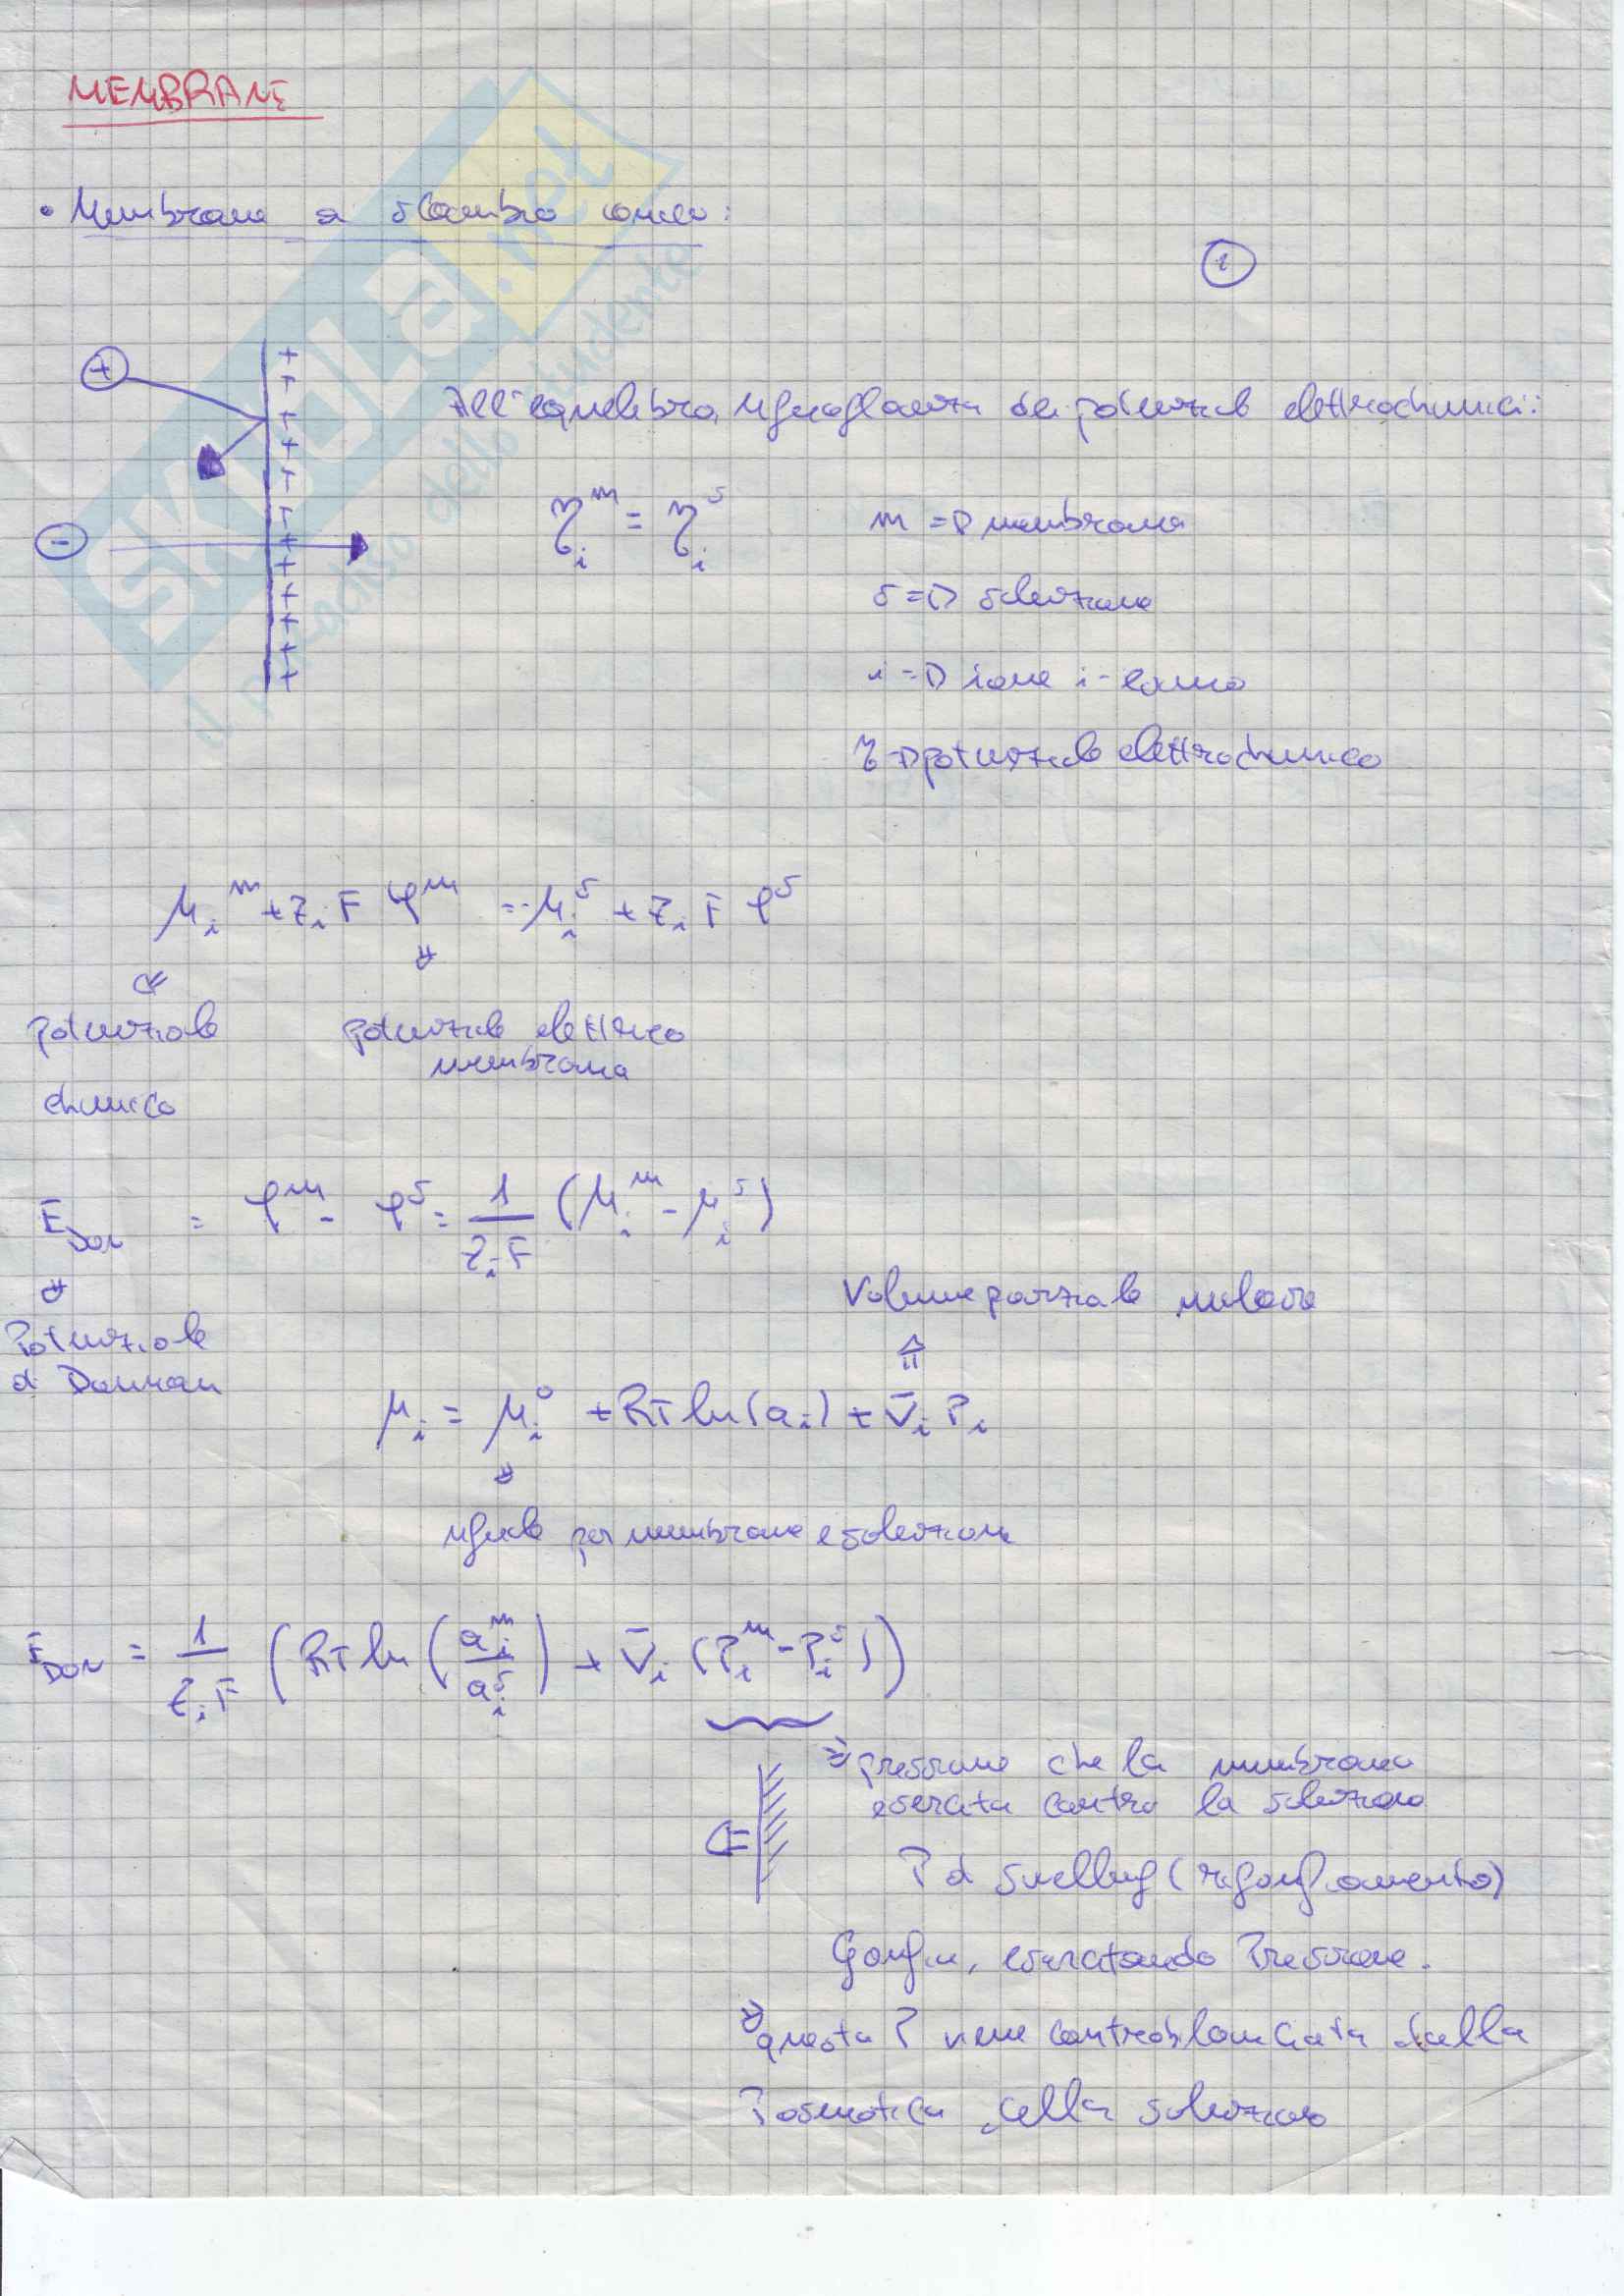 MEMBRANE
• Membrane a scambio ionico:
1
+
-
+ + + + + + + + + + + +
All'equilibrio, uguaglianza dei potenziali elettrochimici:
η_i^m = η_i^s
m => membrana
s => soluzione
i => ione i-esimo
η => potenziale elettrochimico
μ_i^m + z_i F φ^m = μ_i^s + z_i F φ^s
potenziale chimico
potenziale elettrico membrana
E_DON = φ^m - φ^s = 1/(z_i F) (μ_i^m - μ_i^s)
Potenziale di Donnan
Volume parziale molare
μ_i = μ_i^0 + RT ln(a_i) + V̄_i P_i
uguale per membrana e soluzione
E_DON = 1/(z_i F) (RT ln(a_i^m / a_i^s) + V̄_i (P_i^m - P_i^s))
=> pressione che la membrana
esercita contro la soluzione
P di swelling (rigonfiamento)
Gonfia, esercitando Pressione.
=> questa P viene controbilanciata dalla
P osmotica della soluzione
SKUOLA.net
il paradiso dello studente